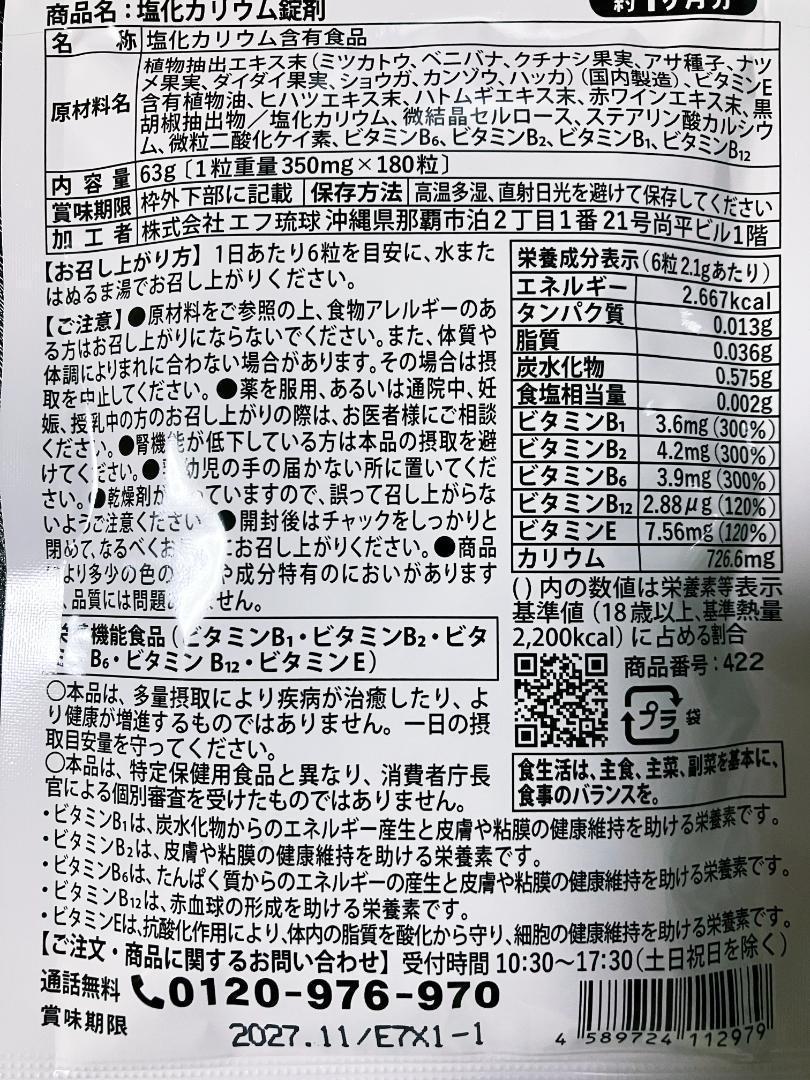 商品名：塩化カリウム錠剤
約1ヶ月分
名 称 塩化カリウム含有食品
原材料名
植物抽出エキス末（ミツカトウ、ベニバナ、クチナシ果実、アサ種子、ナツ
メ果実、ダイダイ果実、ショウガ、カンゾウ、ハッカ）（国内製造）、ビタミンE
含有植物油、ヒハツエキス末、ハトムギエキス末、赤ワインエキス末、黒
胡椒抽出物／塩化カリウム、微結晶セルロース、ステアリン酸カルシウ
ム、微粒二酸化ケイ素、ビタミンB₆、ビタミンB₂、ビタミンB₁、ビタミンB₁₂
内容量 63g〔1粒重量350mg×180粒〕
賞味期限 枠外下部に記載 保存方法 高温多湿、直射日光を避けて保存してください
加工者 株式会社 エフ琉球 沖縄県那覇市泊2丁目1番21号尚平ビル1階
【お召し上がり方】1日あたり6粒を目安に、水また
はぬるま湯でお召し上がりください。
【ご注意】●原材料をご参照の上、食物アレルギーのあ
る方はお召し上がりにならないでください。また、体質や
体調によりまれに合わない場合があります。その場合は摂
取を中止してください。●薬を服用、あるいは通院中、妊
娠、授乳中の方のお召し上がりの際は、お医者様にご相談
ください。●腎機能が低下している方は本品の摂取を避
けてください。●幼児の手の届かない所に置いてくだ
さい。●乾燥剤がっていますので、誤って召し上がらな
いようご注意ください●開封後はチャックをしっかりと
閉めて、なるべくおにお召し上がりください。●商品
より多少の色のや成分特有のにおいがあります
、品質には問題せん。
機能食品（ビタミンB₁・ビタミンB₂・ビタ
B₆・ビタミンB₁₂・ビタミンE）
〇本品は、多量摂取により疾病が治癒したり、よ
り健康が増進するものではありません。一日の摂
取目安量を守ってください。
〇本品は、特定保健用食品と異なり、消費者庁長
官による個別審査を受けたものではありません。
栄養成分表示（6粒2.1gあたり）
エネルギー 2.667kcal
タンパク質 0.013g
脂質 0.036g
炭水化物 0.575g
食塩相当量 0.002g
ビタミンB₁ 3.6mg（300%）
ビタミンB₂ 4.2mg（300%）
ビタミンB₆ 3.9mg（300%）
ビタミンB₁₂ 2.88μg（120%）
ビタミンE 7.56mg（120%）
カリウム 726.6mg
（）内の数値は栄養素等表示
基準値（18歳以上、基準熱量
2,200kcal）に占める割合
商品番号：422
プラ 袋
食生活は、主食、主菜、副菜を基本に、
食事のバランスを。
・ビタミンB₁は、炭水化物からのエネルギー産生と皮膚や粘膜の健康維持を助ける栄養素です。
・ビタミンB₂は、皮膚や粘膜の健康維持を助ける栄養素です。
・ビタミンB₆は、たんぱく質からのエネルギーの産生と皮膚や粘膜の健康維持を助ける栄養素です。
・ビタミンB₁₂は、赤血球の形成を助ける栄養素です。
・ビタミンEは、抗酸化作用により、体内の脂質を酸化から守り、細胞の健康維持を助ける栄養素です。
【ご注文・商品に関するお問い合わせ】受付時間 10:30～17:30（土日祝日を除く）
通話無料 0120-976-970
賞味期限 2027.11/E7X1-1
4 589724 112979